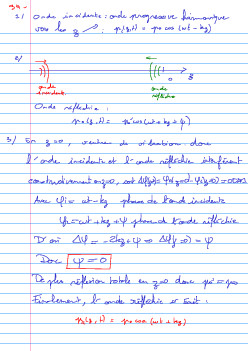 1/ Onde incidente : onde progressive harmonique
vers les z ↗ : p_i(z,t) = p_0 cos(ωt - kz)
2/
onde incidente
onde réfléchie
0 z
Onde réfléchie :
p_r(z,t) = p_0' cos(ωt + kz + φ)
3/ En z=0, ventre de vibration donc
l'onde incidente et l'onde réfléchie interfèrent
constructivement en z=0,
Avec φ_i = ωt - kz phase de l'onde incidente
φ_r = ωt + kz + φ phase de l'onde réfléchie
D'où Δφ = -2kz - φ ⇒ Δφ(z=0) = φ
Donc φ = 0
De plus réflexion totale en z=0 donc p_0' = p_0
Finalement, l'onde réfléchie s'écrit :
p_r(z,t) = p_0 cos(ωt + kz)